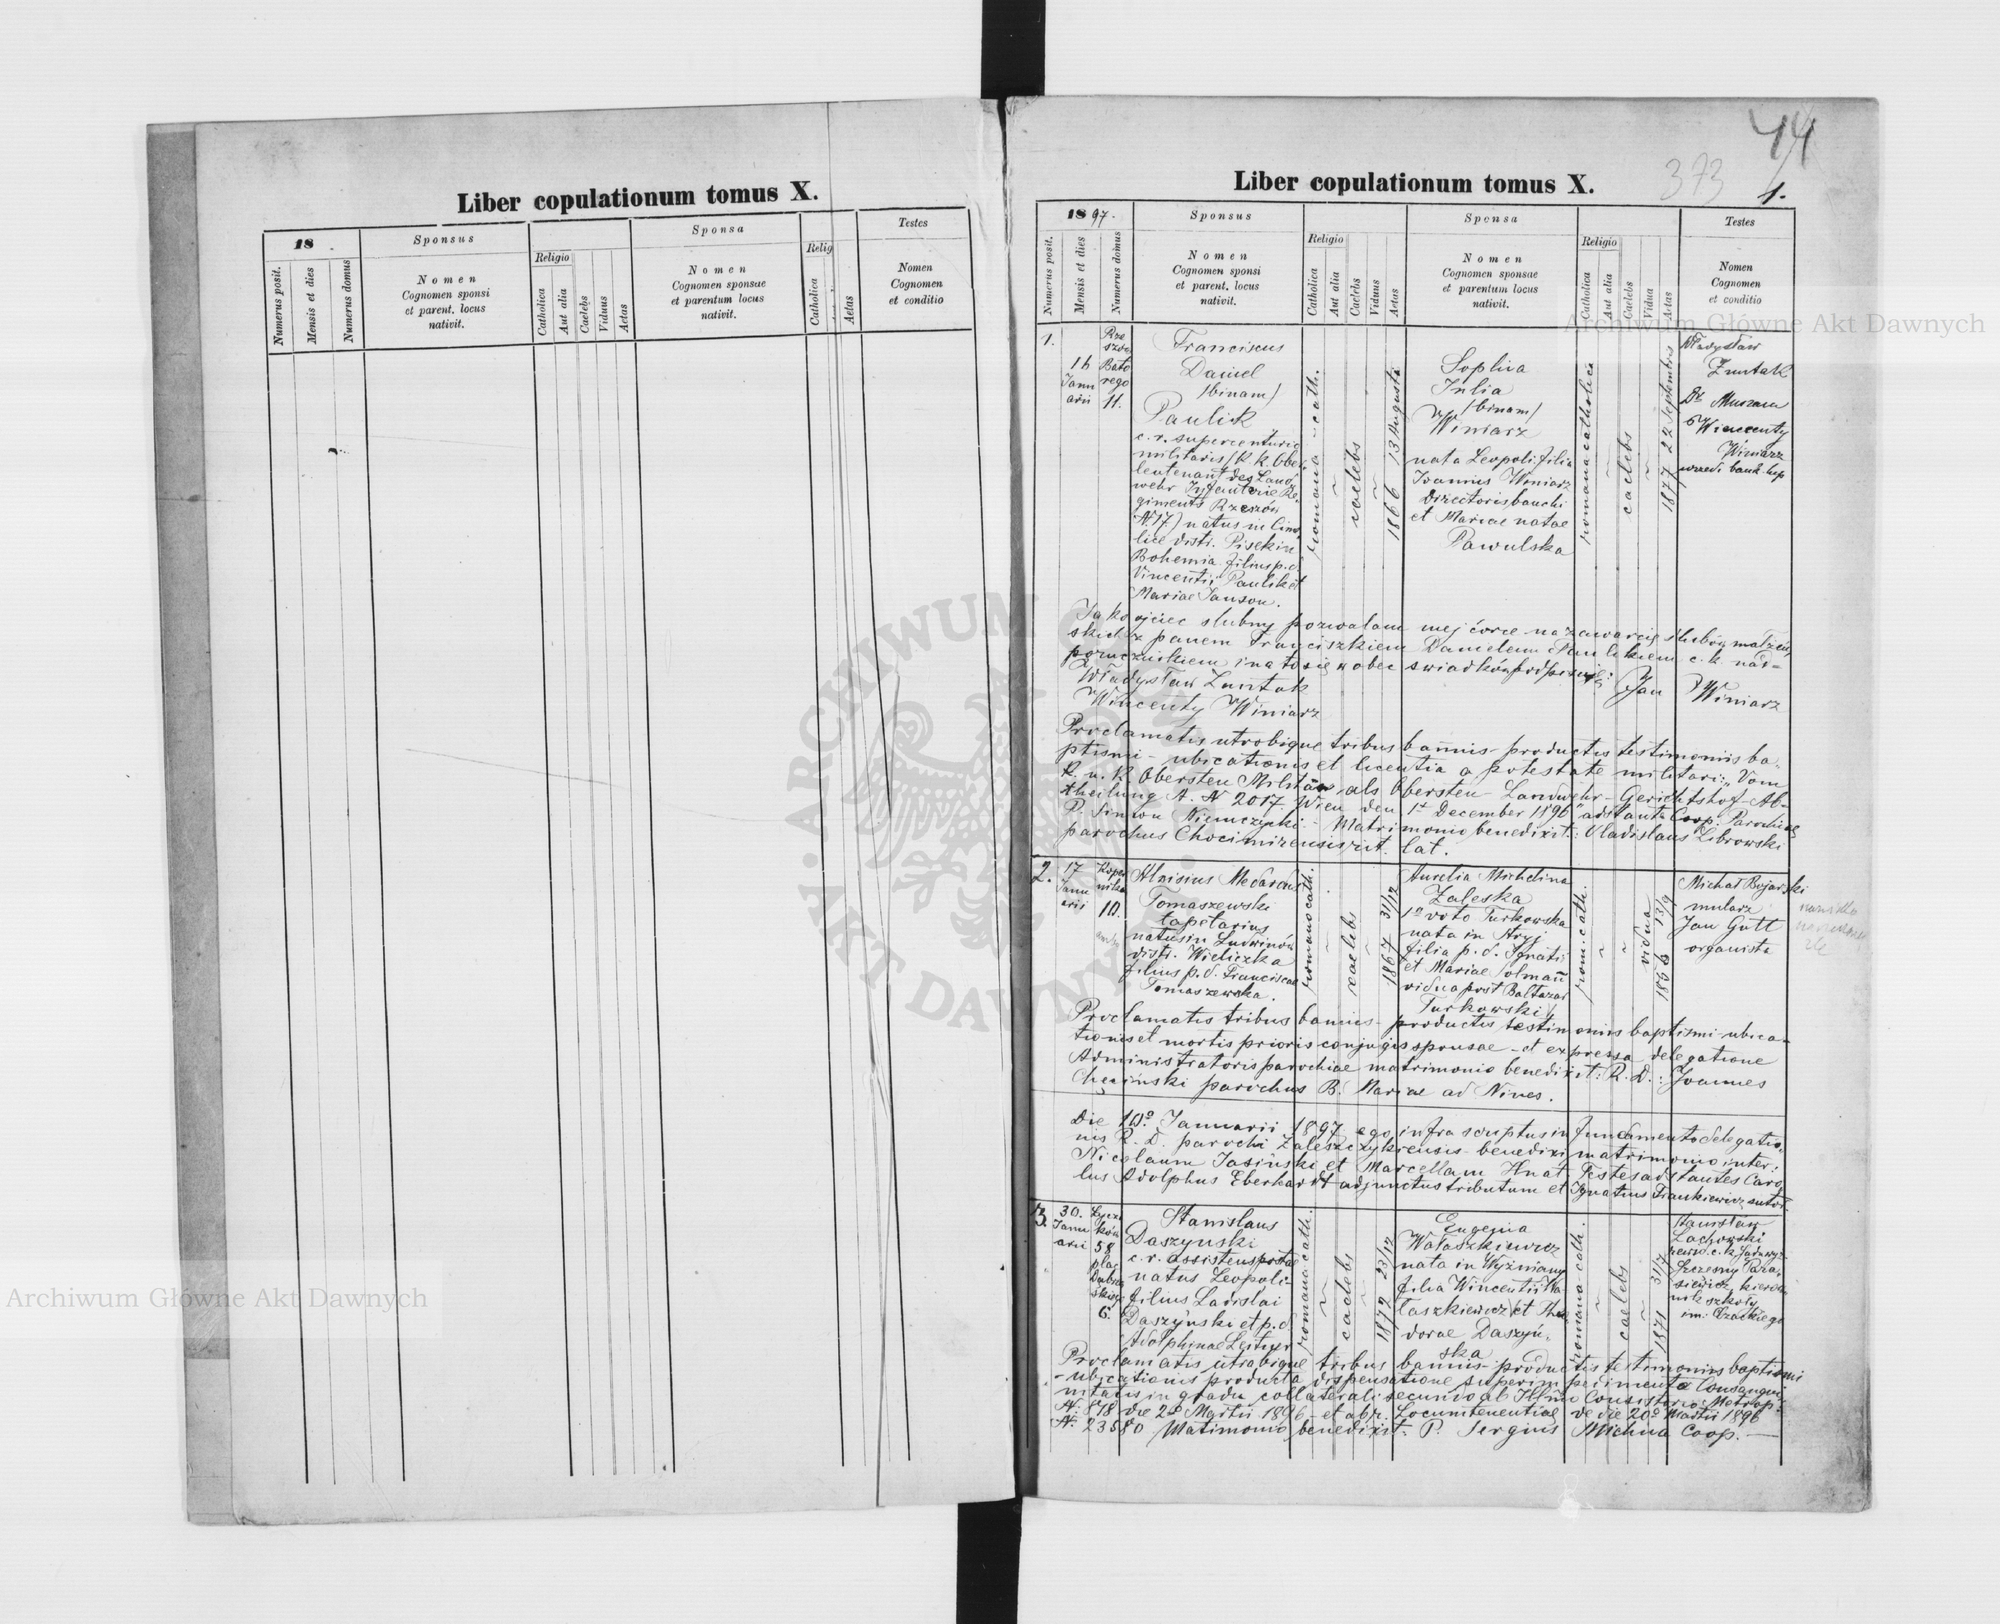 Liber copulationum tomus X.
18 .
Numerus posit.
Mensis et dies
Numerus domus
Sponsus
Nomen
Cognomen sponsi
et parent. locus
nativit.
Religio
Catholica
Aut alia
Caelebs
Viduus
Aetas
Sponsa
Nomen
Cognomen sponsae
et parentum locus
nativit.
Relig
Catholica
Aetas
Testes
Nomen
Cognomen
et conditio
44
373
1.
Liber copulationum tomus X.
1897.
Numerus posit.
Mensis et dies
Numerus domus
Sponsus
Nomen
Cognomen sponsi
et parent. locus
nativit.
Religio
Catholica
Aut alia
Caelebs
Viduus
Aetas
Sponsa
Nomen
Cognomen sponsae
et parentum locus
nativit.
Religio
Catholica
Aut alia
Caelebs
Vidua
Aetas
Testes
Nomen
Cognomen
et conditio
1.
Janu
arii
Bato
rego
11.
Franciscus
Daniel
/binam/
Paulik
militaris/k.k. Ober
leutenant des Land
wehr Infanterie Re
giments Rzeszów
N.17.) natus in
lice distr. Pisek in
Bohemia filius p.d.
Vincentii Paulik et
Mariae Janson.
romana-cath.
caelebs
1866 13 Augusti
Sophia
Julia
/binam/
Winiarz
nata Leopoli filia
Joannis Winiarz
directoris banchi
et Mariae natae
Pawulska
romana catholica
caelebs
1877 22 Septembris
Władysław
Zontak
Dr
Wincenty
Winiarz
Jako ojciec ślubny pozwalam mej córce na zawarcie ślubów małżeń
skich z panem Franciszkiem Danielem Paulikiem c.k. nad-
porucznikiem i na to się wobec świadków podpisuję:
Władysław Zontak
Jan Winiarz
Wincenty Winiarz
Proclamatis utrobique tribus bannis - productis testimoniis ba-
ptismi - ubicationis et licentia a potestate militari: "Vom
K. u. K. Obersten Militär als Obersten Landwehr-Gerichtshof-Ab-
theilung A. N 2017 Wien den 1t December 1896" adstante Coop. Parochiae
P. Simon - Matrimonio benedixit: Vladislaus Librowski
parochus Chocimirensis rit. lat.
2.
17
Janu
arii
Koper
nika
10.
Aloisius Medardus
Tomaszewski
tapetarius
natus in Ludwinów
distr. Wieliczka
filius p.d. Franciscae
Tomaszewska.
romano cath.
caelebs
1867 31/12
Aurelia Michelina
Zaleska
1o voto Turkowska
nata in Stryj
filia p.d. Ignatii
et Mariae
vidua post Baltazar
Turkowski
rom. cath.
vidua
13/9
Michał Bojarski
mularz
Jan Gutt
organista
Proclamatis tribus bannis - productis testimoniis baptismi - ubica-
tionis et mortis prioris conjugis sponsae - et expressa delegatione
Administratoris parochiae matrimonio benedixit: R. D.: Joannes
parochus B. Mariae ad Nives.
Die 10o Januarii 1897 ego infra scriptus in fundamento delegatio
nis R. D. parochi Zaleszczykiensis - benedixi matrimonio inter:
Nicolaum Jasiński et Marcellam Hnat Testes adstantes Caro
lus Adolphus Eberhardt adjunctus tributum et Ignatius Frankiewicz sutor.
3.
30.
Janu
arii
Łycza
ków
58
plac
Dąbrow
skiego
6.
Stanislaus
Daszynski
c.r. assistens postae
natus Leopoli
filius Ladislai
Daszyński et p.d.
Adolphinae
romana cath.
caelebs
1872 23/12
Eugenia
Wałaszkiewicz
nata in Wyżniany
filia Wincentii Wa
łaszkiewicz et Theo
dorae Daszyń-
ska
romana-cath.
caelebs
1871 31/7
Stanisław
Lachowski
Szczęsny Para-
siewicz kierow
nik szkoły
im. Czackiego
Proclamatis utrobique tribus bannis - productis testimoniis baptismi
- ubicationis producta dispensatione super impedimento Consangui
nitatis in gradu collaterali secundo ab Illmo Consistorio Metrop:
N: 878 die 2o Martii 1896 - et ab r. Locumtenentiae de die 20o Martii 1896
N: 23580 Matrimonio benedixit: P. Sergius Michna Coop.
Archiwum Główne Akt Dawnych
Archiwum Główne Akt Dawnych
ARCHIWUM
AKT DAWNYCH